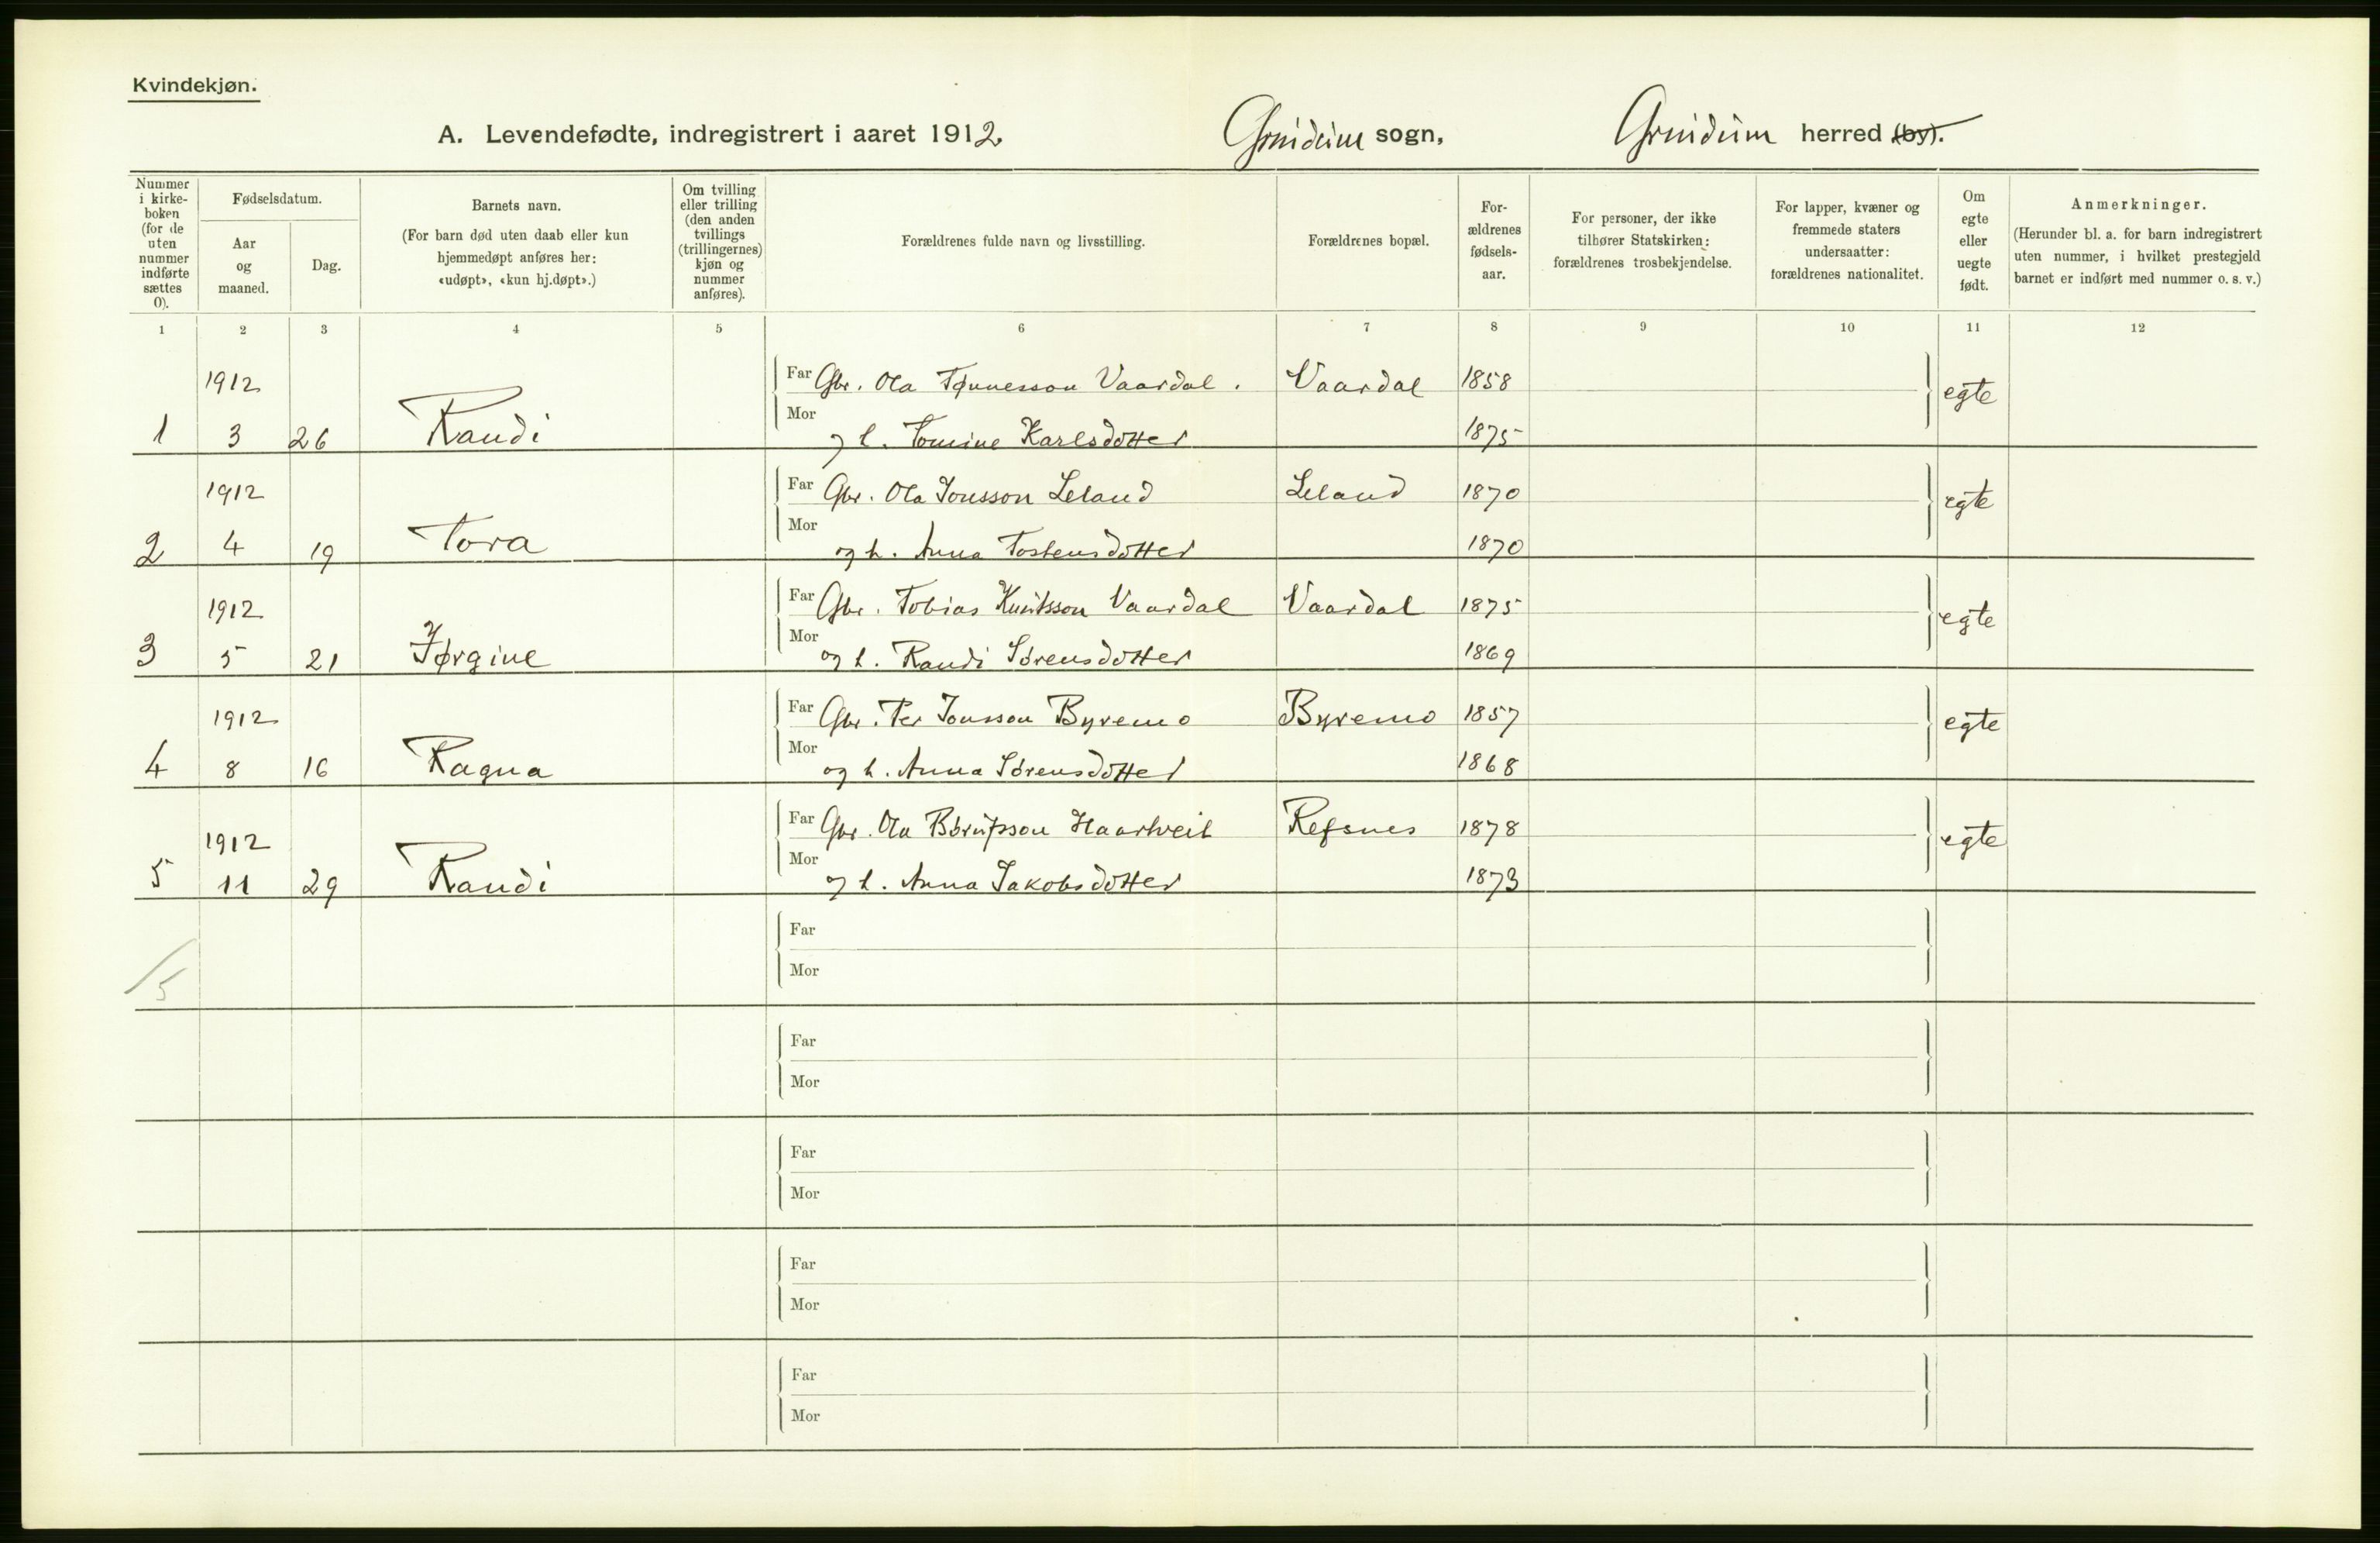 Kvindekjøn.
A. Levendefødte, indregistrert i aaret 1912. Grindum sogn, Grindum herred (by).
Nummer i kirke- boken (for de uten nummer indførte sættes 0).
Fødselsdatum.
Aar og maaned.
Dag.
Barnets navn.
(For barn død uten daab eller kun
hjemmedøpt anføres her:
«udøpt», «kun hj.døpt».)
Om tvilling eller trilling (den anden tvillings (trillingernes) kjøn og nummer anføres).
Forældrenes fulde navn og livsstilling.
Forældrenes bopæl.
For- ældrenes fødsels- aar.
For personer, der ikke
tilhører Statskirken:
forældrenes trosbekjendelse.
For lapper, kvæner og
fremmede staters
undersaatter:
forældrenes nationalitet.
Om egte eller uegte født.
Anmerkninger.
(Herunder bl. a. for barn indregistrert
uten nummer, i hvilket prestegjeld
barnet er indført med nummer o. s. v.)
1 2 3 4 5 6 7 8 9 10 11 12
1912 Far Gbr. Ola Tønnesson Vaardal. Vaardal 1858 egte
1 3 26 Randi Mor og h. Tomine Karlsdotter 1875
1912 Far Gbr. Ola Jonsson Leland Leland 1870 egte
2 4 19 Tora Mor og h. Anna Tostensdotter 1870
1912 Far Gbr. Tobias Knutsson Vaardal Vaardal 1875 egte
3 5 21 Jørgine Mor og h. Randi Sørensdotter 1869
1912 Far Gbr. Per Jonsson Byremo Byremo 1857 egte
4 8 16 Ragna Mor og h. Anna Sørensdotter 1868
1912 Far Gbr. Ola Børufsson Haartveit Refsnes 1878 egte
5 11 29 Randi Mor og h. Anna Jakobsdotter 1873
Far
/5 Mor
Far
Mor
Far
Mor
Far
Mor
Far
Mor